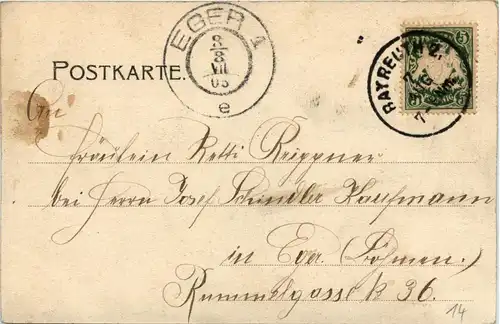 EGER 1
8
8
VII
03
e
BAYREUTH 2.
5
5
POSTKARTE.
An
Fräulein Retti Reippner
bei Herrn Josef Schindler Kaufmann
in Eger. (Böhmen.)
Rummelgasse № 36.
14